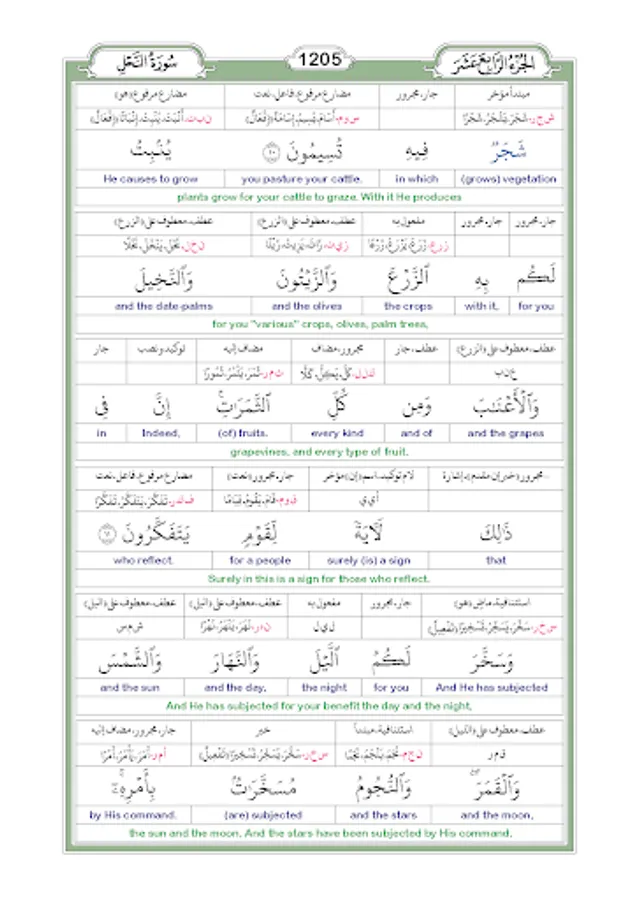 الجزء الرابع عشر 1205 سورة النحل
مبتدأ مؤخر جار، مجرور مضارع مرفوع، فاعل، نعت مضارع مرفوع (هو)
شَجَرٌ فِيهِ تُسِيمُونَ ١٠ يُنْۢبِتُ
(grows) vegetation in which you pasture your cattle. He causes to grow
plants grow for your cattle to graze. With it He produces
جار، مجرور جار، مجرور مفعول به عطف، معطوف على (الزرع) عطف، معطوف على (الزرع)
لَكُم بِهِ ٱلزَّرْعَ وَٱلزَّيْتُونَ وَٱلنَّخِيلَ
for you with it, the crops and the olives and the date-palms
for you "various" crops, olives, palm trees,
عطف، معطوف على (الزرع) عطف، جار مجرور، مضاف مضاف إليه توكيد ونصب جار
عنب
وَٱلْأَعْنَٰبَ وَمِن كُلِّ ٱلثَّمَرَٰتِ إِنَّ فِى
and the grapes and of every kind (of) fruits. Indeed, in
grapevines, and every type of fruit.
مجرور (خبر إن مقدم)، إشارة لام توكيد، اسم (إن) مؤخر جار، مجرور (نعت) مضارع مرفوع، فاعل، نعت
أيي
ذَٰلِكَ لَءَايَةً لِّقَوْمٍ يَتَفَكَّرُونَ ١١
that surely (is) a sign for a people who reflect.
Surely in this is a sign for those who reflect.
استئنافية، ماض (هو) جار، مجرور مفعول به عطف، معطوف على (الليل) عطف، معطوف على (الليل)
ليل شمس
وَسَخَّرَ لَكُمُ ٱلَّيْلَ وَٱلنَّهَارَ وَٱلشَّمْسَ
And He has subjected for you the night and the day, and the sun
And He has subjected for your benefit the day and the night,
عطف، معطوف على (الليل) استئنافية، مبتدأ خبر جار، مجرور، مضاف إليه
قمر
وَٱلْقَمَرَ وَٱلنُّجُومُ مُسَخَّرَٰتٌۢ بِأَمْرِهِۦٓ
and the moon, and the stars (are) subjected by His command.
the sun and the moon, And the stars have been subjected by His command,